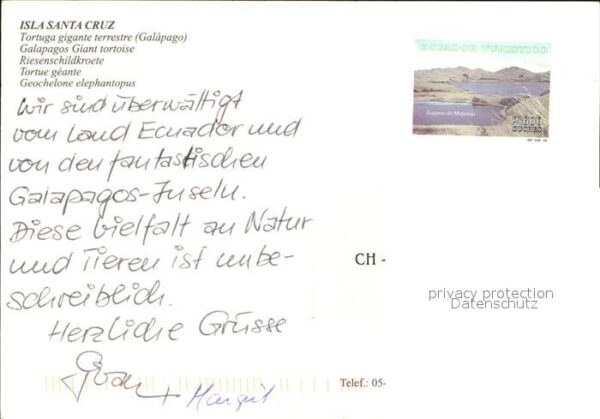 ISLA SANTA CRUZ
Tortuga gigante terrestre (Galápago)
Galapagos Giant tortoise
Riesenschildkroete
Tortue géante
Geochelone elephantopus
Wir sind überwältigt
vom Land Ecuador und
von den fantastischen
Galapagos-Inseln.
Diese Vielfalt an Natur
und Tieren ist unbe-
schreiblich.
Herzliche Grüsse
+ Margrit
ECUADOR TURISTICO
Laguna de Mojanda
SUCRES
CH -
privacy protection
Datenschutz
Telef.: 05-